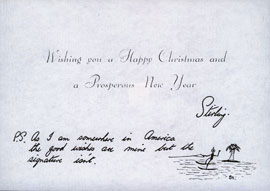 Wishing you a Happy Christmas and
a Prosperous New Year
Stirling.
P.S. As I am somewhere in America
the good wishes are mine but the
signature isnt.